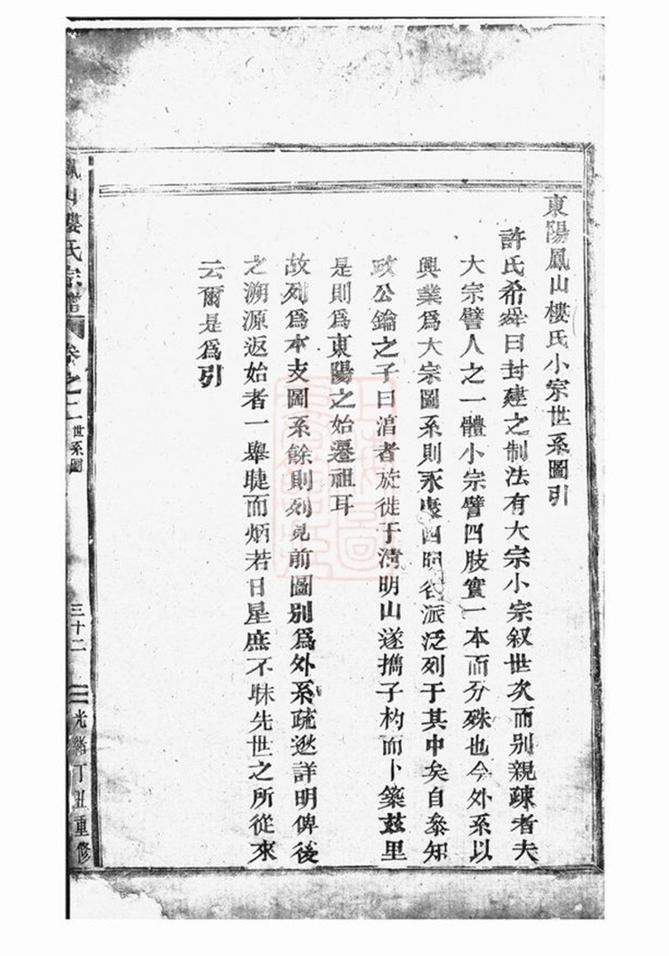 東陽鳳山樓氏小宗世系圖引
許氏希舜曰封建之制法有大宗小宗叙世次而別親疎者夫
大宗譬人之一體小宗譬四肢實一本而分殊也今外系以
興業爲大宗圖系則永康四明各派泛列于其中矣自參知
政公鑰之子曰涫者旋徙于清明山遂擕子杓而卜築兹里
是則爲東陽之始遷祖耳
故列爲本支圖系餘則列見前圖別爲外系疏逖詳明俾後
之溯源返始者一舉睫而炳若日星庶不昧先世之所從來
云爾是爲引
鳳山樓氏宗譜
卷之二
世系圖
三十二
光緒丁丑重修